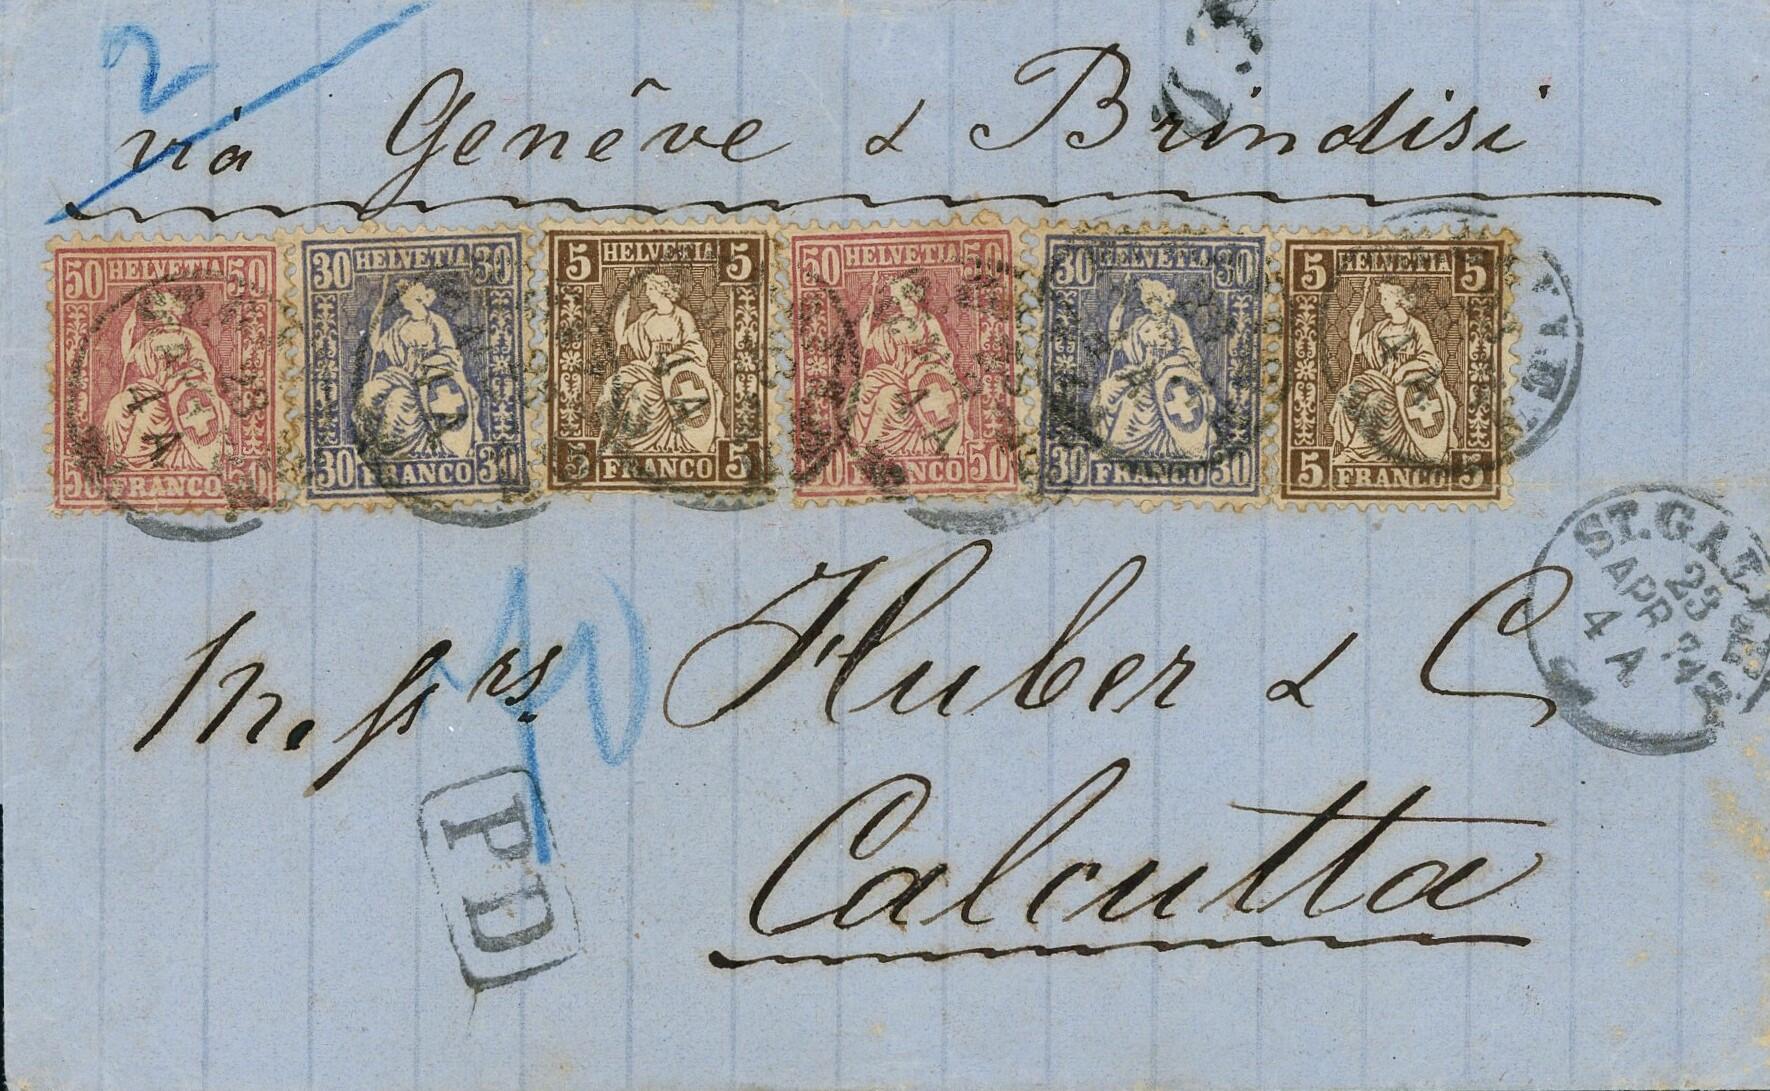 2
via Genêve & Brindisi
50 HELVETIA 50
50 FRANCO 50
30 HELVETIA 30
30 FRANCO 30
5 HELVETIA 5
5 FRANCO 5
50 HELVETIA 50
50 FRANCO 50
30 HELVETIA 30
30 FRANCO 30
5 HELVETIA 5
5 FRANCO 5
ST. GALLEN
23
APR 74
4 A
Messrs Huber & C
Calcutta
PD